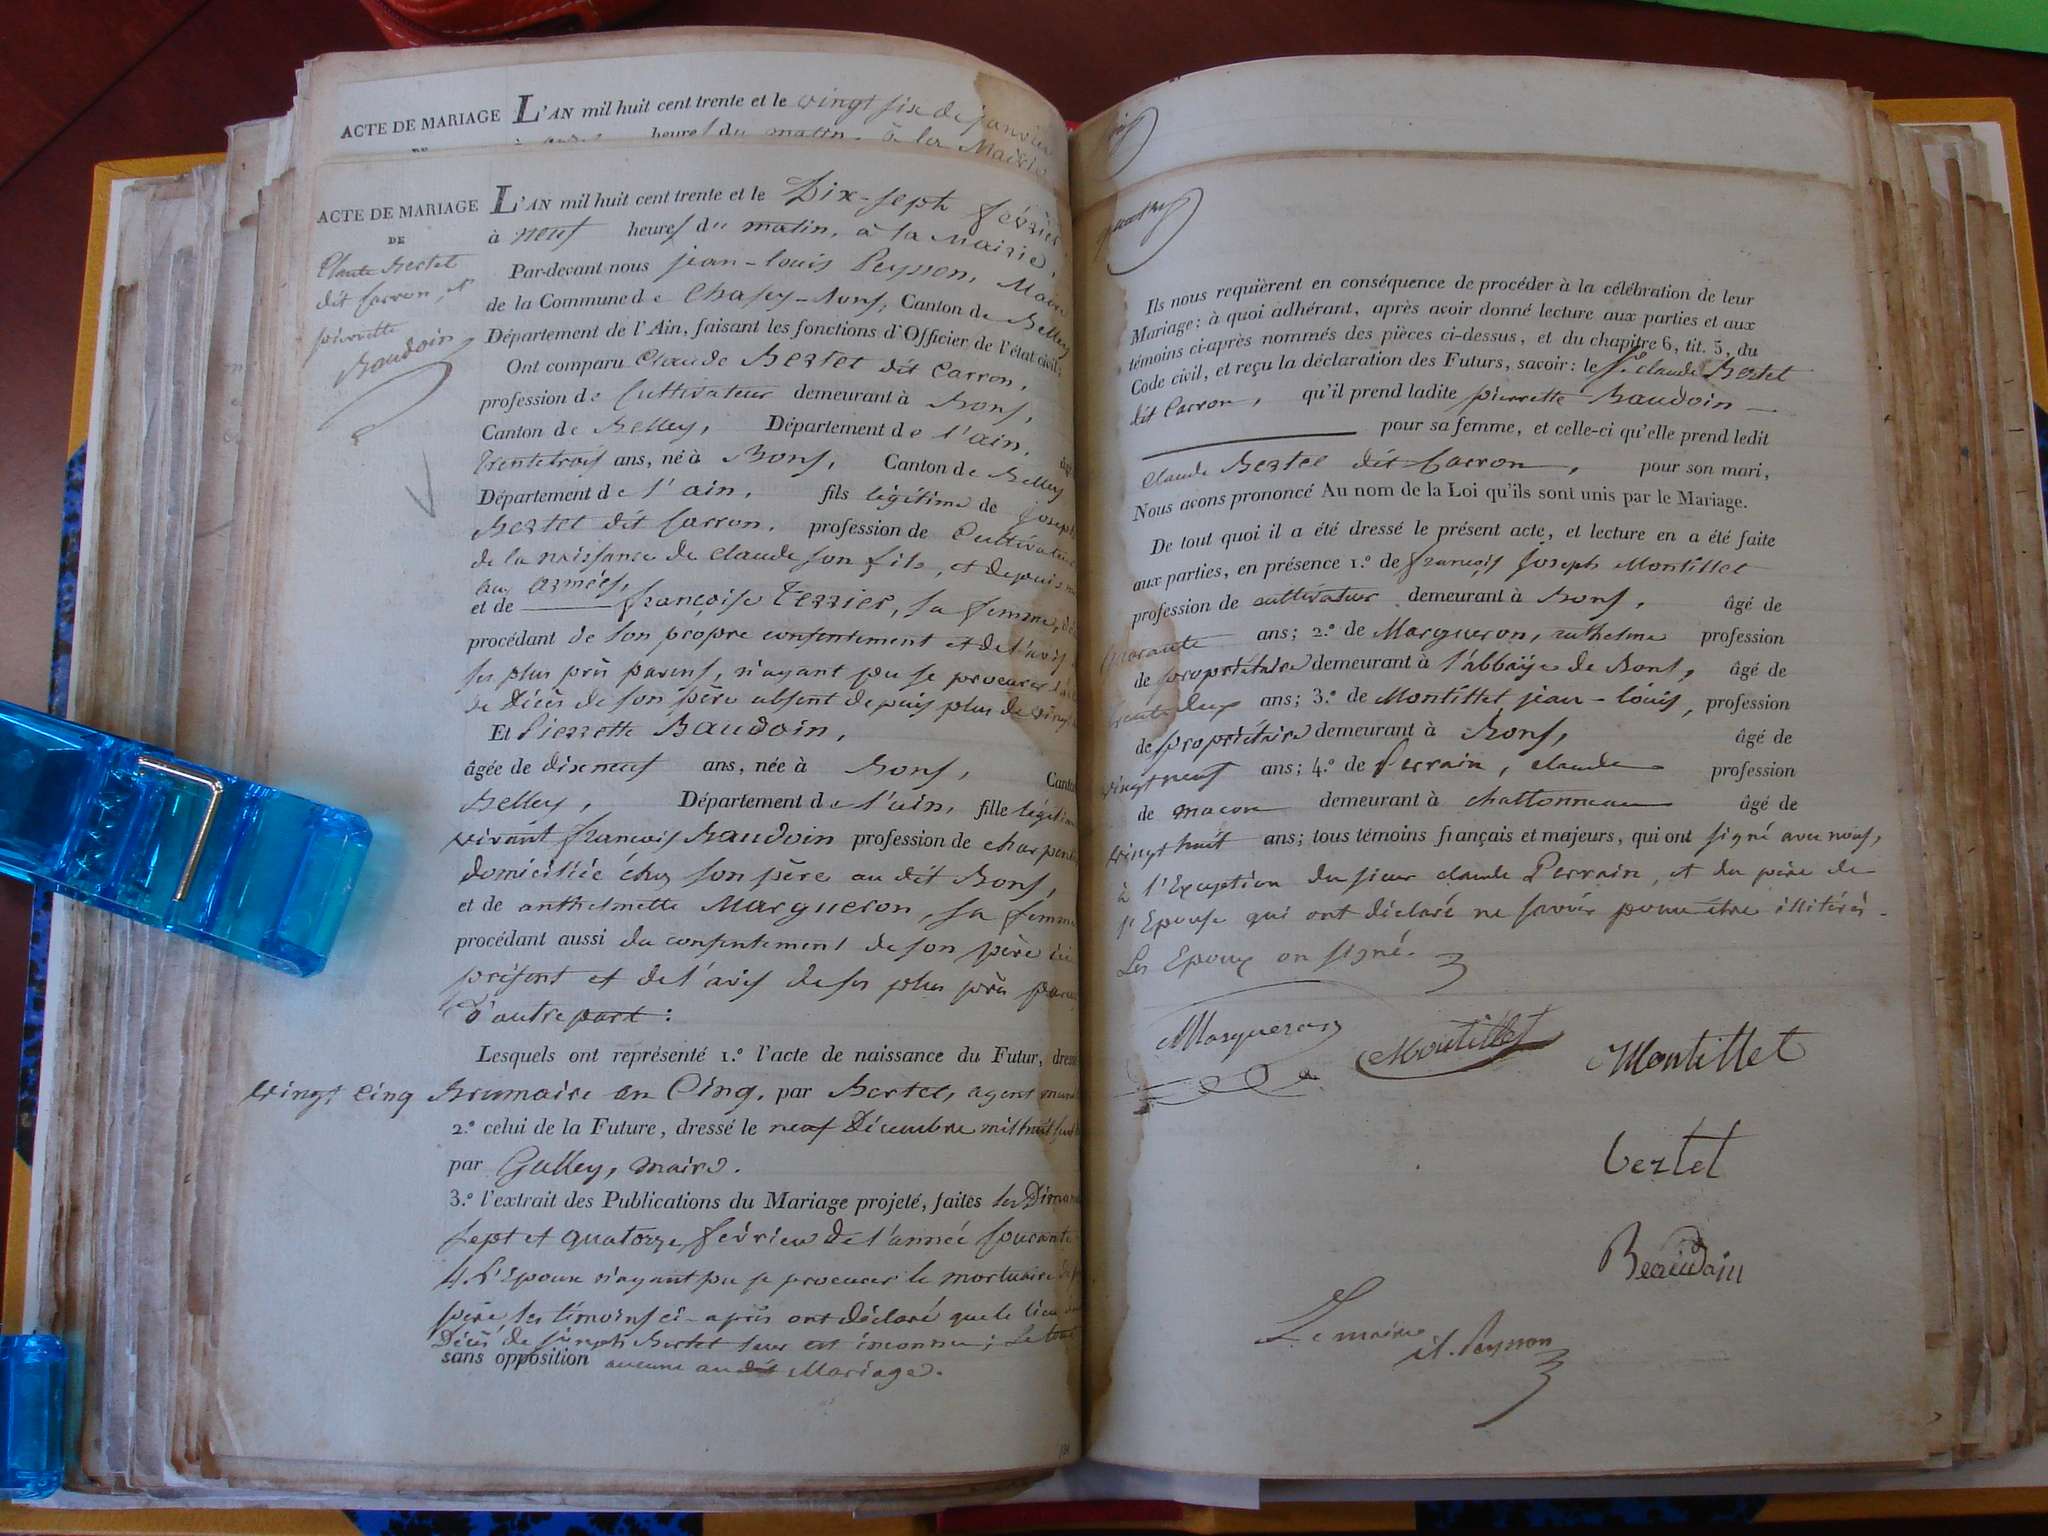 ACTE DE MARIAGE L'AN mil huit cent trente et le vingt six de janvier
heures du matin, à la Mairie
ACTE DE MARIAGE
DE
Claude Bertet
dit Carron, et
pierrette
Baudoin
L'AN mil huit cent trente et le Dix-sept février
à neuf heures du matin, à la Mairie,
Par-devant nous jean-louis Peysson, Maire
de la Commune de Chasey-Bons, Canton de Belley
Département de l'Ain, faisant les fonctions d'Officier de l'état civil,
Ont comparu Claude Bertet dit Carron,
profession de Cultivateur demeurant à Bons,
Canton de Belley, Département de l'ain, âgé
trente trois ans, né à Bons, Canton de Belley
Département de l'ain, fils légitime de Joseph
Bertet dit Carron, profession de Cultivateur
de la naissance de Claude son fils, et depuis
aux armées,
et de françoise Terrier, sa femme,
procédant de son propre consentement et de l'avis
ses plus près parens, n'ayant pu se procurer
de Décès de son père absent depuis plus de vingt
Et Pierrette Baudoin,
âgée de dix neuf ans, née à Bons, Canton
Belley, Département de l'ain, fille légitime
vivant françois Baudoin profession de
domiciliée chez son père au dit Bons,
et de anthelmette Margueron, sa femme
procédant aussi du consentement de son père ici
présent et de l'avis de ses plus près
d'autre part:
Lesquels ont représenté 1.º l'acte de naissance du Futur, dressé
vingt cinq Brumaire an Cinq, par Bertet, agent
2.º celui de la Future, dressé le neuf Décembre mil huit
par Gulley, maire.
3.º l'extrait des Publications du Mariage projeté, faites les
sept et quatorze février de l'année
4. L'Epoux n'ayant pu se procurer le mortuaire
père, les témoins ci-après ont déclaré que le lieu
Décès de Joseph Bertet leur est inconnu; Le tout
sans opposition aucune au dit Mariage.
Ils nous requièrent en conséquence de procéder à la célébration de leur
Mariage: à quoi adhérant, après avoir donné lecture aux parties et aux
témoins ci-après nommés des pièces ci-dessus, et du chapitre 6, tit. 5, du
Code civil, et reçu la déclaration des Futurs, savoir: le Sr. Claude Bertet
dit Carron, qu'il prend ladite pierrette Baudoin
pour sa femme, et celle-ci qu'elle prend ledit
Claude Bertet dit Carron, pour son mari,
Nous avons prononcé Au nom de la Loi qu'ils sont unis par le Mariage.
De tout quoi il a été dressé le présent acte, et lecture en a été faite
aux parties, en présence 1.º de françois Joseph Montillet
profession de cultivateur demeurant à Bons, âgé de
quarante ans; 2.º de Margueron, anthelme profession
de propriétaire demeurant à l'abbaye de Bons, âgé de
trente deux ans; 3.º de Montillet, jean-louis, profession
de propriétaire demeurant à Bons, âgé de
vingt neuf ans; 4.º de Perrain, claude profession
de macon demeurant à chattonneau âgé de
vingt huit ans; tous témoins français et majeurs, qui ont signé avec nous,
à l'Exception du sieur claude Perrain, et du père de
l'Epouse qui ont déclaré ne savoir pour être illitérés.
Les Epoux on signé.
Margueron Montillet Montillet
bertet
Beaudoin
Le maire
jl. Peysson